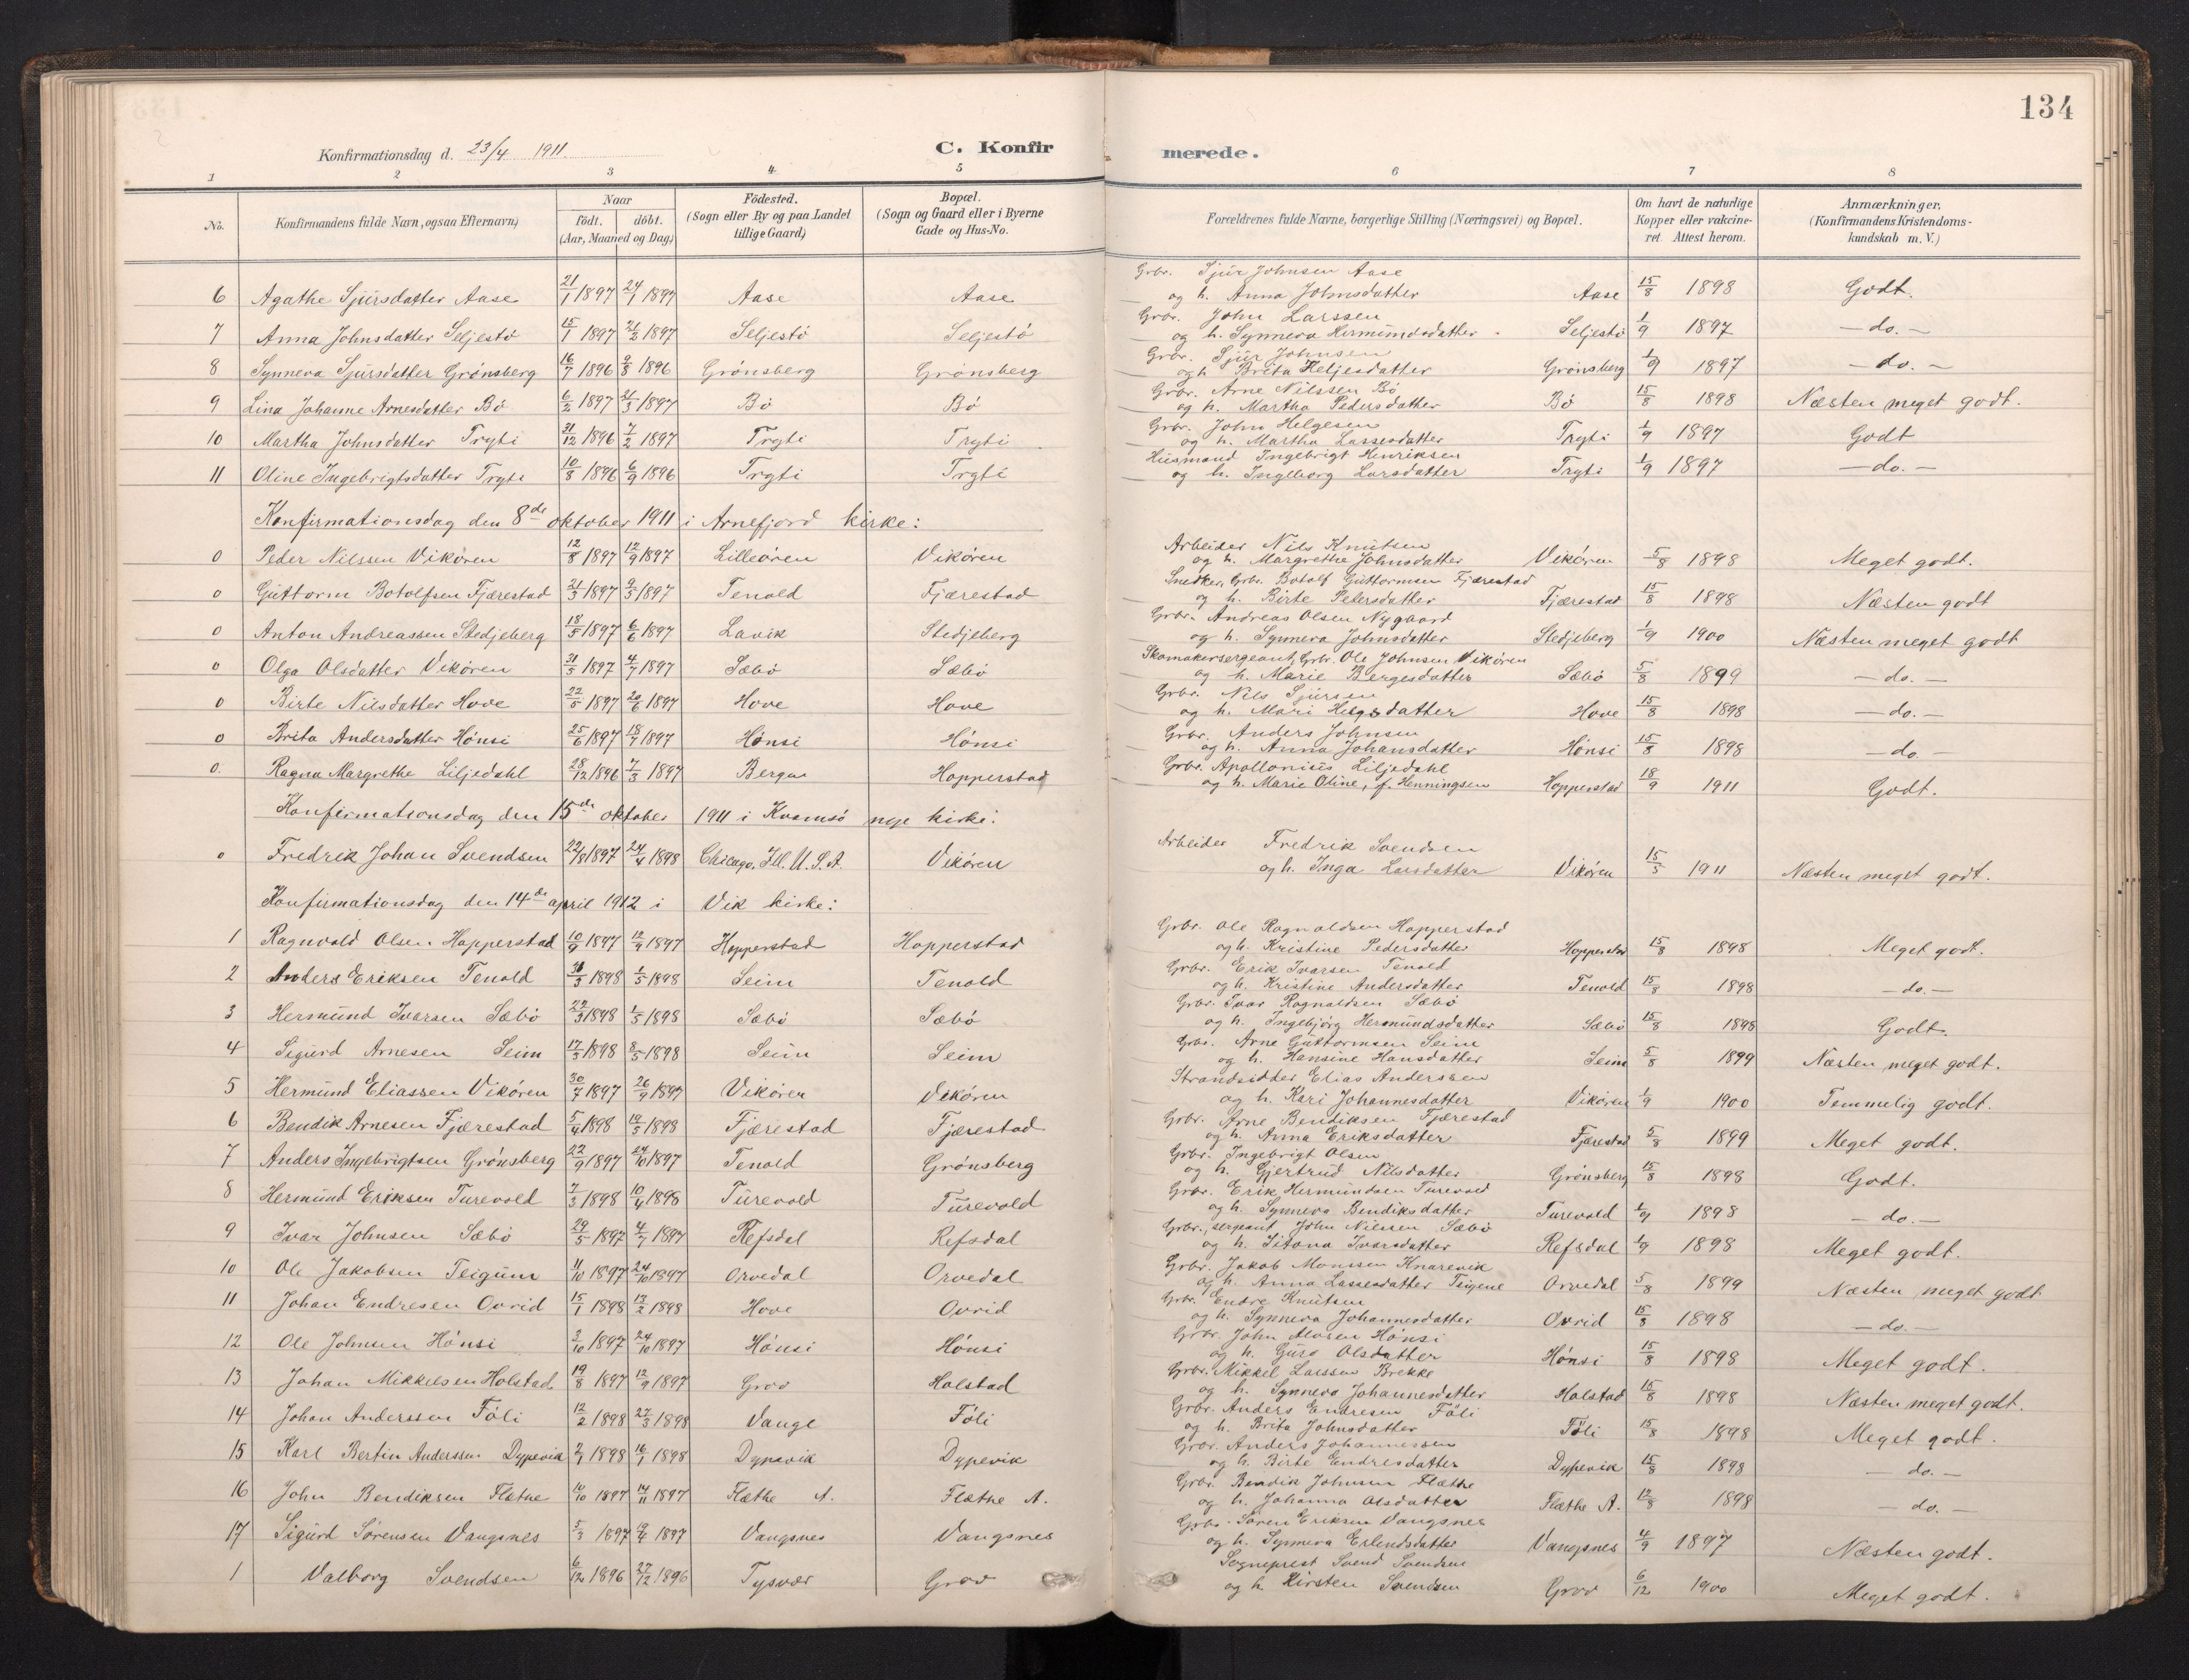 134
Konfirmationsdag d. 23/4 1911.
C. Konfir merede.
1 2 3 4 5 6 7 8
No.
Konfirmandens fulde Navn, ogsaa Efternavn)
Naar
født. døbt.
(Aar, Maaned og Dag)
Födested.
(Sogn eller By og paa Landet
tillige Gaard)
Bopæl.
(Sogn og Gaard eller i Byerne
Gade og Hus-No.
Forældrenes fulde Navne, borgerlige Stilling (Næringsvei) og Bopæl.
Om havt de naturlige
Kopper eller vakcine-
ret. Attest herom.
Anmærkninger.
(Konfirmandens Kristendoms-
kundskab m. V.)
Grbr. Sjur Johnsen Aase
6 Agathe Sjursdatter Aase 21/1 1897 24/1 1897 Aase Aase og h. Anna Johnsdatter Aase 15/8 1898 Godt.
Grbr. John Larssen
7 Anna Johnsdatter Seljestö 15/1 1897 21/2 1897 Seljestö Seljestö og h. Synneva Hermundsdatter Seljestö 1/9 1897 — do. —
Grbr. Sjur Johnsen
8 Synneva Sjursdatter Grönsberg 16/7 1896 9/8 1896 Grönsberg Grönsberg og h Brita Heljesdatter Grönsberg 1/9 1897 — do. —
Grbr. Arne Nilssen Bö
9 Lina Johanne Arnesdatter Bö 6/2 1897 21/3 1897 Bö Bö og h. Martha Pedersdatter Bö 15/8 1898 Næsten meget godt.
Grbr. John Helgesen
10 Martha Johnsdatter Tryti 31/12 1896 7/2 1897 Tryti Tryti og h. Martha Lassesdatter Tryti 1/9 1897 Godt
Husmand Ingebrigt Henriksen
11 Oline Ingebrigtsdatter Tryti 10/8 1896 6/9 1896 Tryti Tryti og h. Ingeborg Larsdatter Tryti 1/9 1897 — do. —
Konfirmationsdag den 8de oktober 1911 i Arnefjord kirke:
Arbeider Nils Knutsen
0 Peder Nilssen Vikören 12/8 1897 12/9 1897 Lilleören Vikören og h. Margrethe Johnsdatter Vikören 5/8 1898 Meget godt.
Snedker, Grbr. Botolf Guttormsen Fjærestad
0 Guttorm Botolfsen Fjærestad 21/3 1897 9/5 1897 Tenold Fjærestad og h. Birte Petersdatter Fjærestad 15/8 1898 Næsten godt
Grbr. Andreas Olsen Nygaard
0 Anton Andreassen Stedjeberg 18/5 1897 6/6 1897 Lavik Stedjeberg og h. Synneva Johnsdatter Stedjeberg 1/9 1900 Næsten meget godt
Skomakersergeant, Grbr. Ole Johnsen Vikören
0 Olga Olsdatter Vikören 31/5 1897 4/7 1897 Sæbö Sæbö og h. Marie Bergesdatter Sæbö 5/8 1899 — do. —
Grbr. Nils Sjursen
0 Birte Nilsdatter Hove 22/5 1897 20/6 1897 Hove Hove og h. Mari Helgesdatter Hove 15/8 1898 — do. —
Grbr. Anders Johnsen
0 Brita Andersdatter Hönsi 25/6 1897 18/7 1897 Hönsi Hönsi og h. Anna Johansdatter Hönsi 15/8 1898 — do —
Grbr. Apollonius Liljedahl
0. Ragna Margrethe Liljedahl 28/12 1896 7/3 1897 Bergen Hopperstad og h. Marie Oline, f. Henningsen Hopperstad 18/9 1911 Godt.
Konfirmationsdag den 15de oktober 1911 i Kvamsö nye kirke:
Arbeider Fredrik Svendsen
0 Fredrik Johan Svendsen 22/8 1897 24/4 1898 Chicago, Ill. U.S.A. Vikören og h. Inga Larsdatter Vikören 15/5 1911 Næsten meget godt.
Konfirmationsdag den 14de april 1912 i Vik kirke:
Grbr. Ole Ragnvaldsen Hopperstad
1 Ragnvald Olsen Hopperstad 10/9 1897 12/9 1897 Hopperstad Hopperstad og h. Kristine Pedersdatter Hopperstad 15/8 1898 Meget godt.
Grbr. Erik Ivarsen Tenold
2 Anders Eriksen Tenold 31/3 1898 1/5 1898 Seim Tenold og h. Kristine Andersdatter Tenold 15/8 1898 — do. —
Grbr. Ivar Ragnaldsen Sæbö
3 Hermund Ivarsen Sæbö 22/3 1898 1/5 1898 Sæbö Sæbö og h. Ingebjörg Hermundsdatter Sæbö 15/8 1898 Godt.
Grbr. Arne Guttormsen Seim
4 Sigurd Arnesen Seim 17/3 1898 8/5 1898 Seim Seim og h. Hansine Hansdatter Seim 5/8 1899 Næsten meget godt.
Strandsidder Elias Anderssen
5 Hermund Eliassen Vikören 30/7 1897 26/9 1897 Vikören Vikören og h. Kari Johannesdatter Vikören 1/9 1900 Temmelig godt.
Grbr. Arne Bendiksen Fjærestad
6 Bendik Arnesen Fjærestad 5/4 1898 19/5 1898 Fjærestad Fjærestad og h. Anna Eriksdatter Fjærestad 5/8 1899 Meget godt.
Grbr. Ingebrigt Olsen
7 Anders Ingebrigtsen Grönsberg 22/9 1897 24/10 1897 Tenold Grönsberg og h. Gjertrud Nilsdatter Grönsberg 15/8 1898 Godt.
Grbr. Erik Hermundsen Turevold
8 Hermund Eriksen Turevold 7/3 1898 10/4 1898 Turevold Turevold og h. Synneva Bendiksdatter Turevold 1/9 1898 — do. —
Grbr, sergeant John Nilssen Sæbö
9 Ivar Johnsen Sæbö 29/5 1897 4/7 1897 Refsdal Refsdal og h. Ivarsdatter Refsdal 1/9 1898 Meget godt.
Grbr. Jakob Monssen Knarevik
10 Ole Jakobsen Teigum 11/10 1897 24/10 1897 Orvedal Orvedal og h. Anna Lassesdatter Teigene Orvedal 5/8 1899 Næsten meget godt
Grbr. Endre Knutsen
11 Johan Endresen Ovrid 15/1 1898 13/2 1898 Hove Ovrid og h. Synneva Johannesdatter Ovrid 15/8 1898 — do. —
Grbr. John Hönsi
12 Ole Johnsen Hönsi 3/10 1897 24/10 1897 Hönsi Hönsi og h. Guro Olsdatter Hönsi 15/8 1898 Meget godt.
Grbr. Mikkel Larssen Brekke
13 Johan Mikkelsen Holstad 19/8 1897 12/9 1897 Grov Holstad og h. Synneva Johannesdatter Holstad 15/8 1898 Næsten meget godt.
Grbr. Anders Endresen Föli
14 Johan Anderssen Föli 12/2 1898 27/3 1898 Vange Föli og h. Brita Johnsdatter Föli 15/8 1898 Meget godt.
Grbr. Anders Johannessen
15 Karl Bertin Anderssen Dypevik 2/1 1898 16/1 1898 Dypevik Dypevik og h. Birte Endresdatter Dypevik 15/8 1898 — do. —
Grbr. Bendik Johnsen Flæthe
16 John Bendiksen Flæthe 10/10 1897 14/11 1897 Flæthe A. Flæthe A. og h. Johanna Olsdatter Flæthe A. 12/8 1898 — do. —
Grbr. Sören Eriksen Vangsnes
17 Sigurd Sörensen Vangsnes 5/3 1897 19/4 1897 Vangsnes Vangsnes og h. Synneva Erlendsdatter Vangsnes 4/9 1897 Næsten godt.
Sogneprest Svend Svendsen
1 Valborg Svendsen 6/12 1896 27/12 1896 Tysvær Grov og h Kirsten Svendsen Grov 6/12 1900 Meget godt.